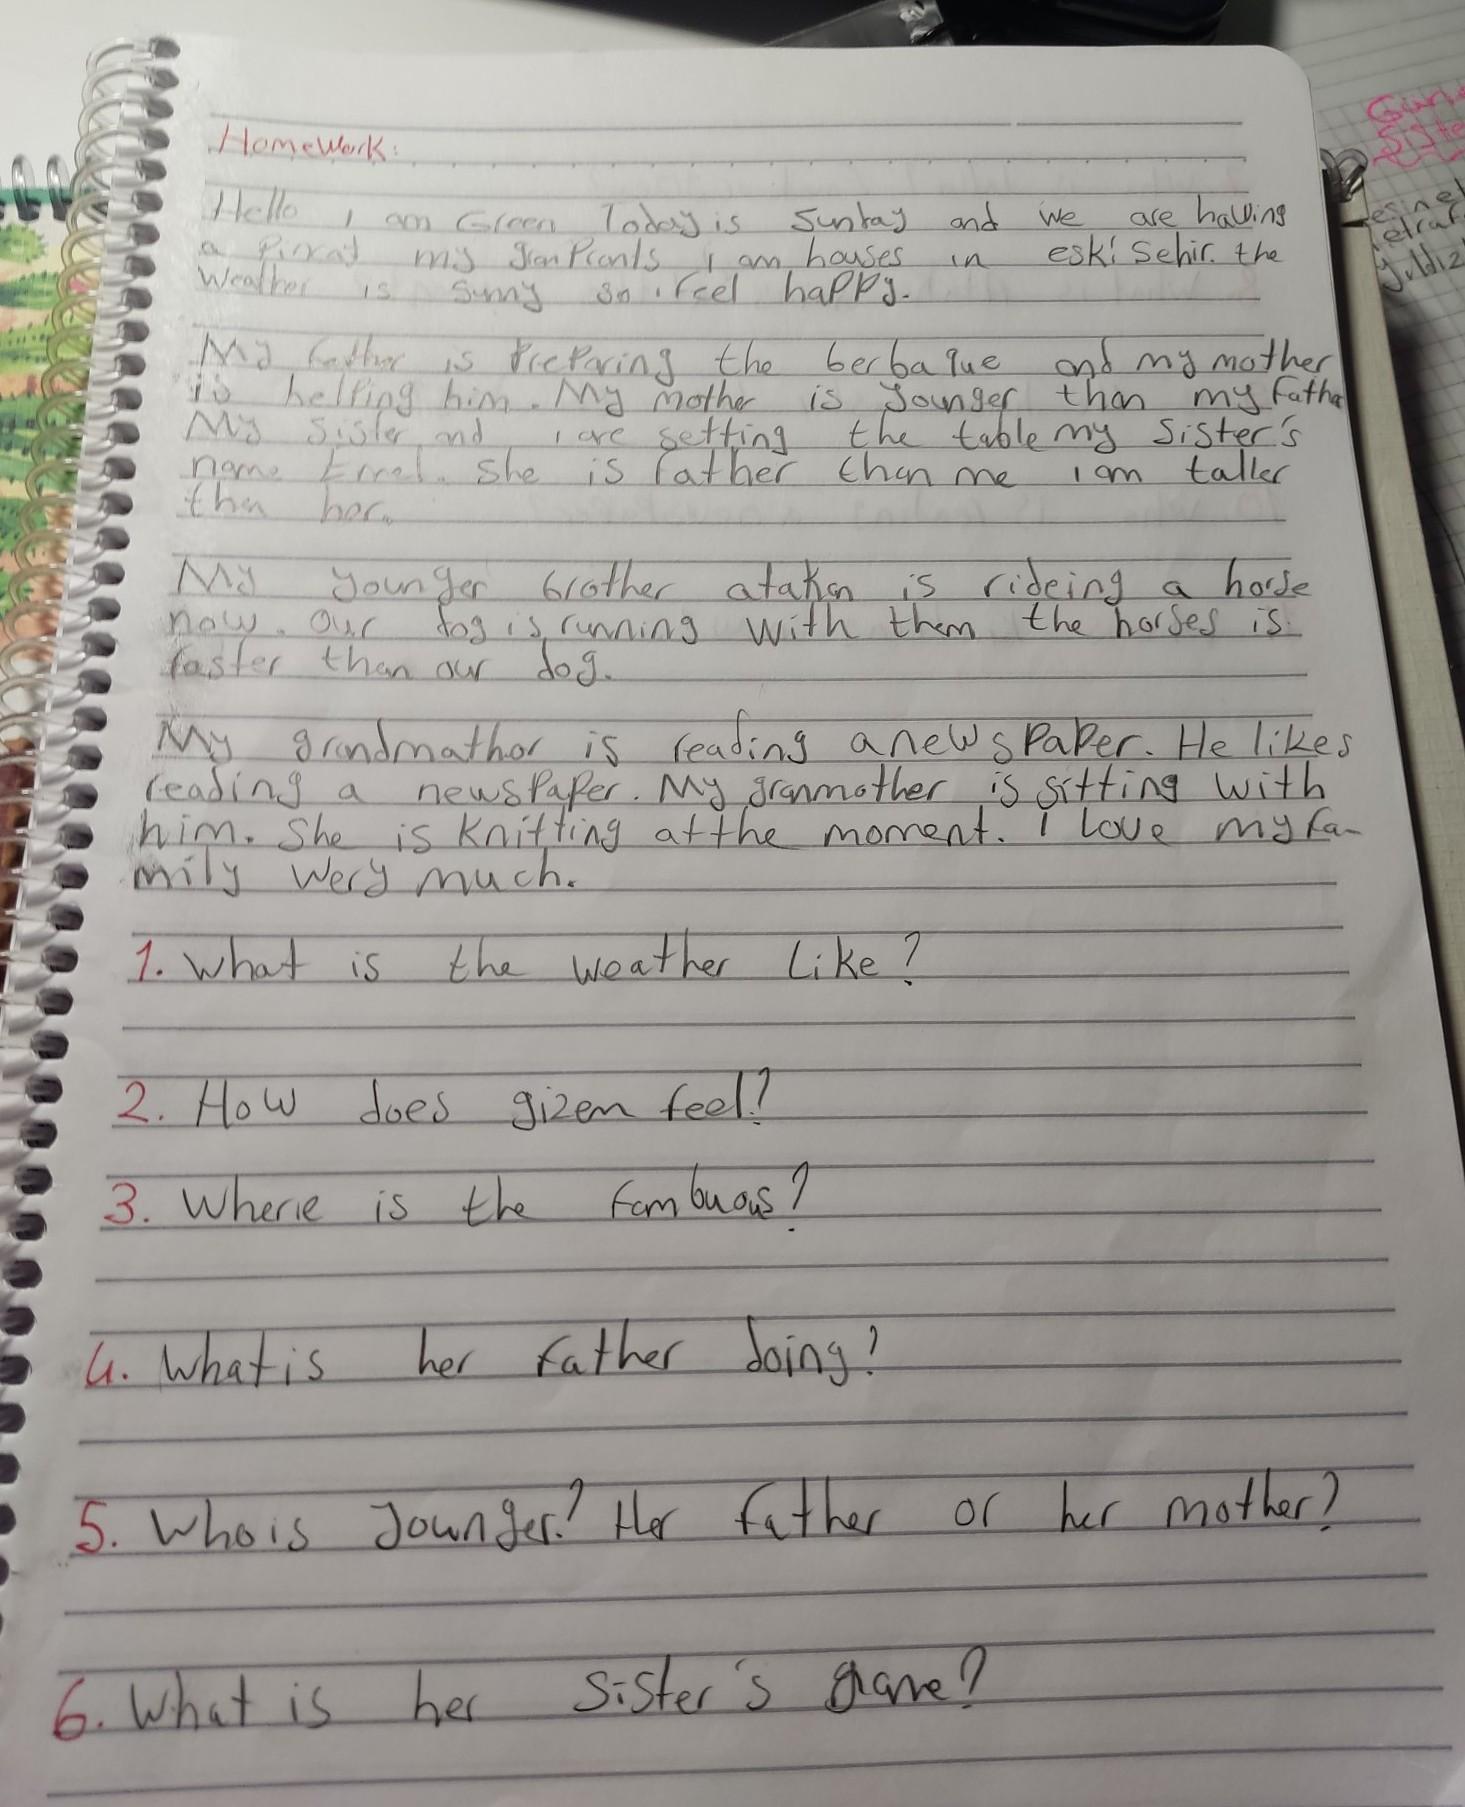 HomeWork:
Hello I am Green Today is Suntay and we are having
a my I am houses in eski Sehir. the
Weather is sunny so i feel happy.
My father is preparing the berbaque and my mother
is helping him. My mother is younger than my Fathe
My Sister and i are setting the table my sister's
name She is father than me I am taller
than her.
My younger brother atakan is rideing a horse
now. Our dog is running with them the horses is
faster than our dog.
My grandmathor is reading a newspaper. He likes
reading a newspaper. My granmother is sitting with
him. She is knitting at the moment. I Love my fa-
mily wery much.
1. What is the weather like?
2. How does gizem feel?
3. Wherie is the
4. What is her father doing?
5. Who is younger? Her father or her mother?
6. What is her sister's